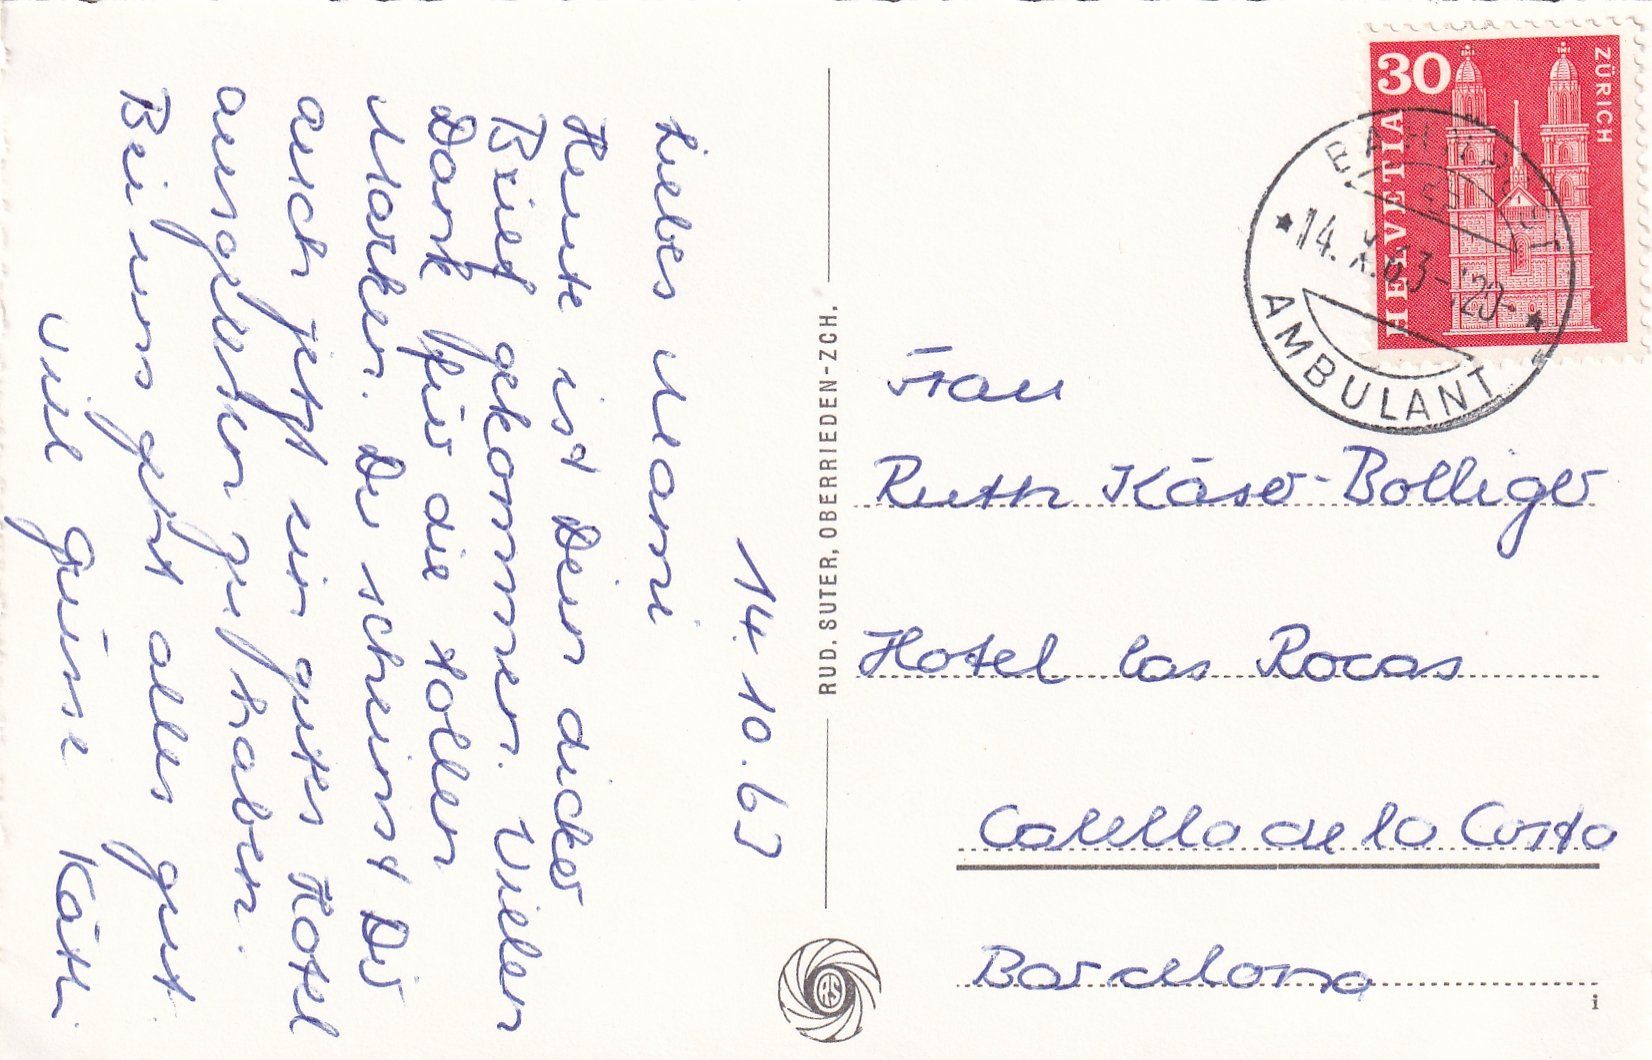 14.10.63
Liebes Mami
Heute ist Dein dicker
Brief gekommen. Vielen
Dank für die tollen
Marken. Du scheinst Dir
auch jetzt ein gutes Hotel
ausgesucht zu haben.
Bei uns geht alles gut
viel grüsse Käthi
RUD. SUTER, OBERRIEDEN-ZCH.
RS
30
HELVETIA
ZÜRICH
BAHNPOST
14.X.63-20-
AMBULANT
Frau
Ruth Käser-Bolliger
Hotel las Rocas
Calella de la Costa
Barcelona
i